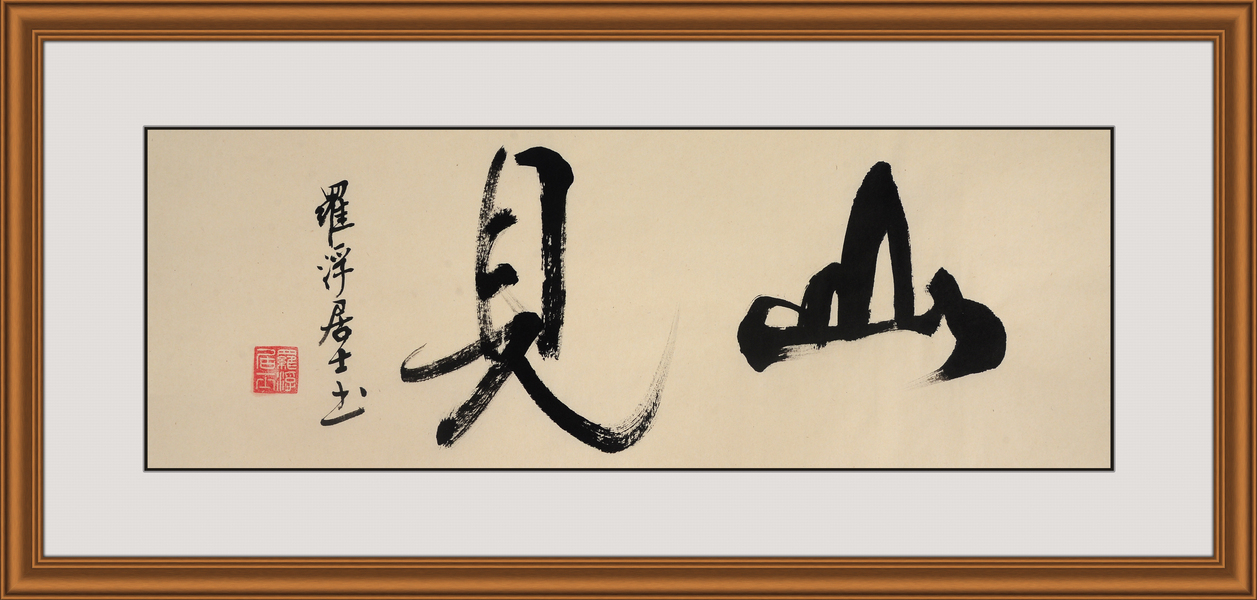 山見
羅浮居士书
羅浮居士